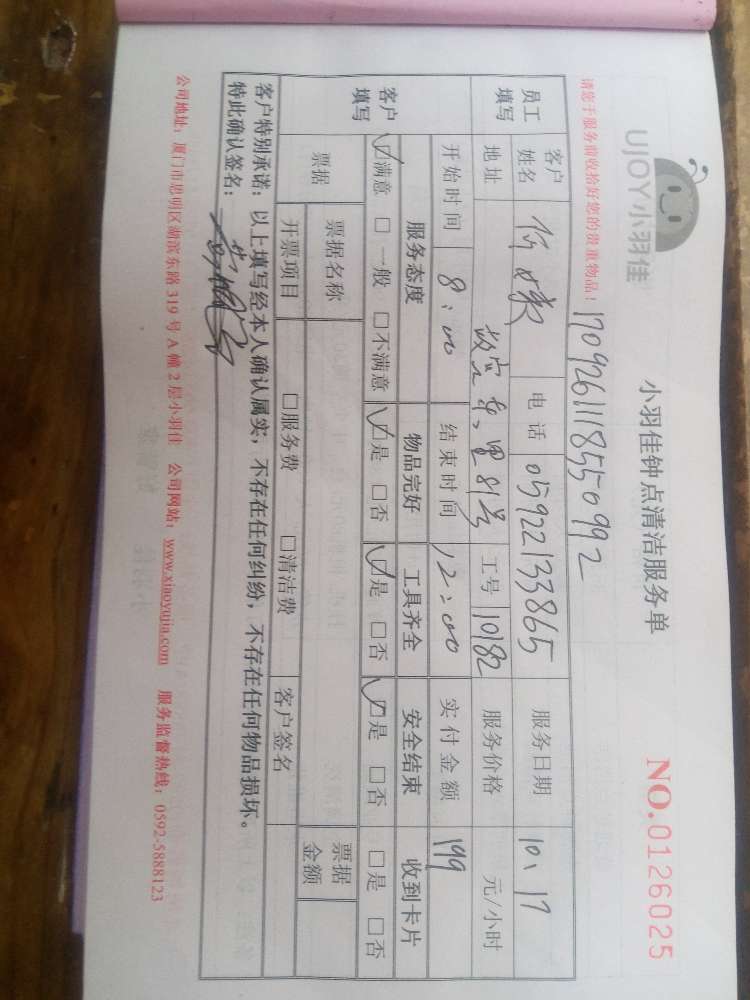 UJOY小羽佳
小羽佳钟点清洁服务单
NO.0126025
请您于服务前收拾好您的贵重物品！
1709261118550992
员工填写 客户姓名 电话 05922133865 服务日期 10、17
地址 里81号 工号 10182 服务价格 元/小时
开始时间 8：00 结束时间 12：00 实付金额 199
客户填写 服务态度 物品完好 工具齐全 安全结束 收到卡片
☑满意 □一般 □不满意 ☑是 □否 ☑是 □否 ☑是 □否 □是 □否
票据 票据名称 票据金额
开票项目 □服务费 □清洁费 客户签名
客户特别承诺：以上填写经本人确认属实，不存在任何纠纷，不存在任何物品损坏。
特此确认签名：
公司地址：厦门市思明区湖滨东路319号A幢2层小羽佳 公司网站：www.xiaoyujia.com 服务监督热线：0592-5888123